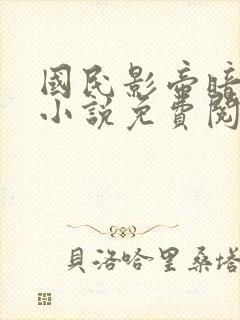 國民影帝暗
小說免費閱
貝洛哈里桑塔